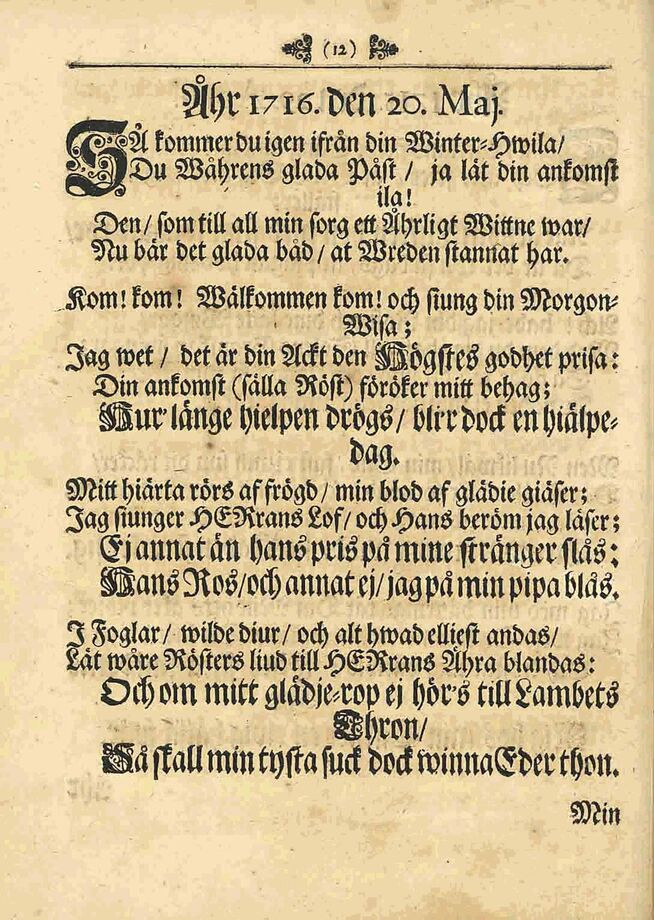 (12)
Åhr 1716. den 20. Maj.
SÅ kommer du igen ifrån din Winter-Hwila/
Du Wåhrens glada Påst / ja låt din ankomst
ila!
Den/ som till all min sorg ett Åhrligt Wittne war/
Nu bär det glada båd/ at Wreden stannat har.
Kom! kom! Wälkommen kom! och siung din Morgon-
Wisa;
Jag wet / det är din Ackt den Högstes godhet prisa:
Din ankomst (sälla Röst) föröker mitt behag;
Hur' länge hielpen drögs/ bli'r dock en hiälpe-
dag.
Mitt hiärta rörs af frögd/ min blod af glädie giäser;
Jag siunger HERrans Lof/ och Hans beröm jag läser;
Ej annat än hans pris på mine stränger slås;
Hans Ros/och annat ej/ jag på min pipa blås.
J Foglar/ wilde diur/ och alt hwad elliest andas/
Låt wåre Rösters liud till HERrans Ähra blandas:
Och om mitt glädje-rop ej hör's till Lambets
Thron/
Så skall min tysta suck dock winna Eder thon.
Min